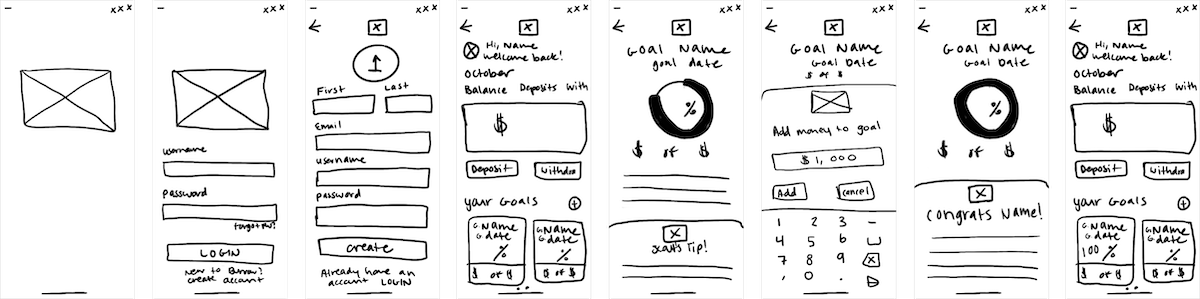 username
password
forgot pw?
LOGIN
New to Burrow?
create account
First Last
Email
username
password
create
Already have an
account LOGIN
Hi, Name
welcome back!
October
Balance Deposits With
$
Deposit Withdra
Your Goals +
G Name G Name
G date G date
% %
$ of $ $ of $
Goal Name
goal date
%
$ of $
Tip!
Goal Name
Goal Date
$ of $
Add money to goal
$1,000
Add Cancel
1 2 3 -
4 5 6
7 8 9 x
, 0 .
Goal Name
Goal Date
%
$ of $
Congrats Name!
Hi, Name
welcome back!
October
Balance Deposits With
$
Deposit Withdra
Your Goals +
G Name G Name
G date G date
100 % %
$ of $ $ of $